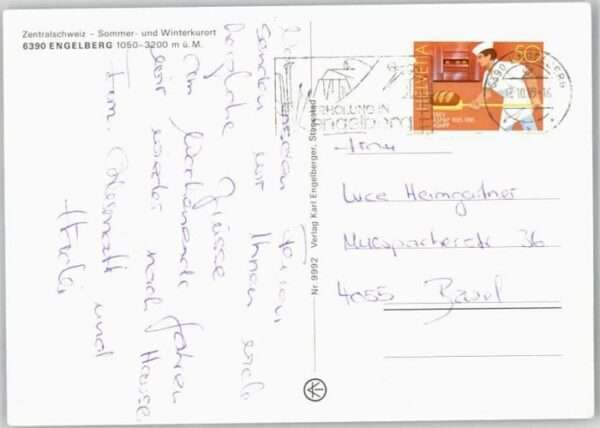 Zentralschweiz – Sommer- und Winterkurort
6390 ENGELBERG 1050–3200 m ü. M.
Ferien
senden wir Ihnen viele
herzliche Grüsse
Am Wochenende fahren
wir wieder nach Hause.
Fam. und
Nr. 9992 Verlag Karl Engelberger, Stansstad
HELVETIA
50
ERHOLUNG IN
Engelberg
Frau
Luce Heimgartner
36
4055 Basel